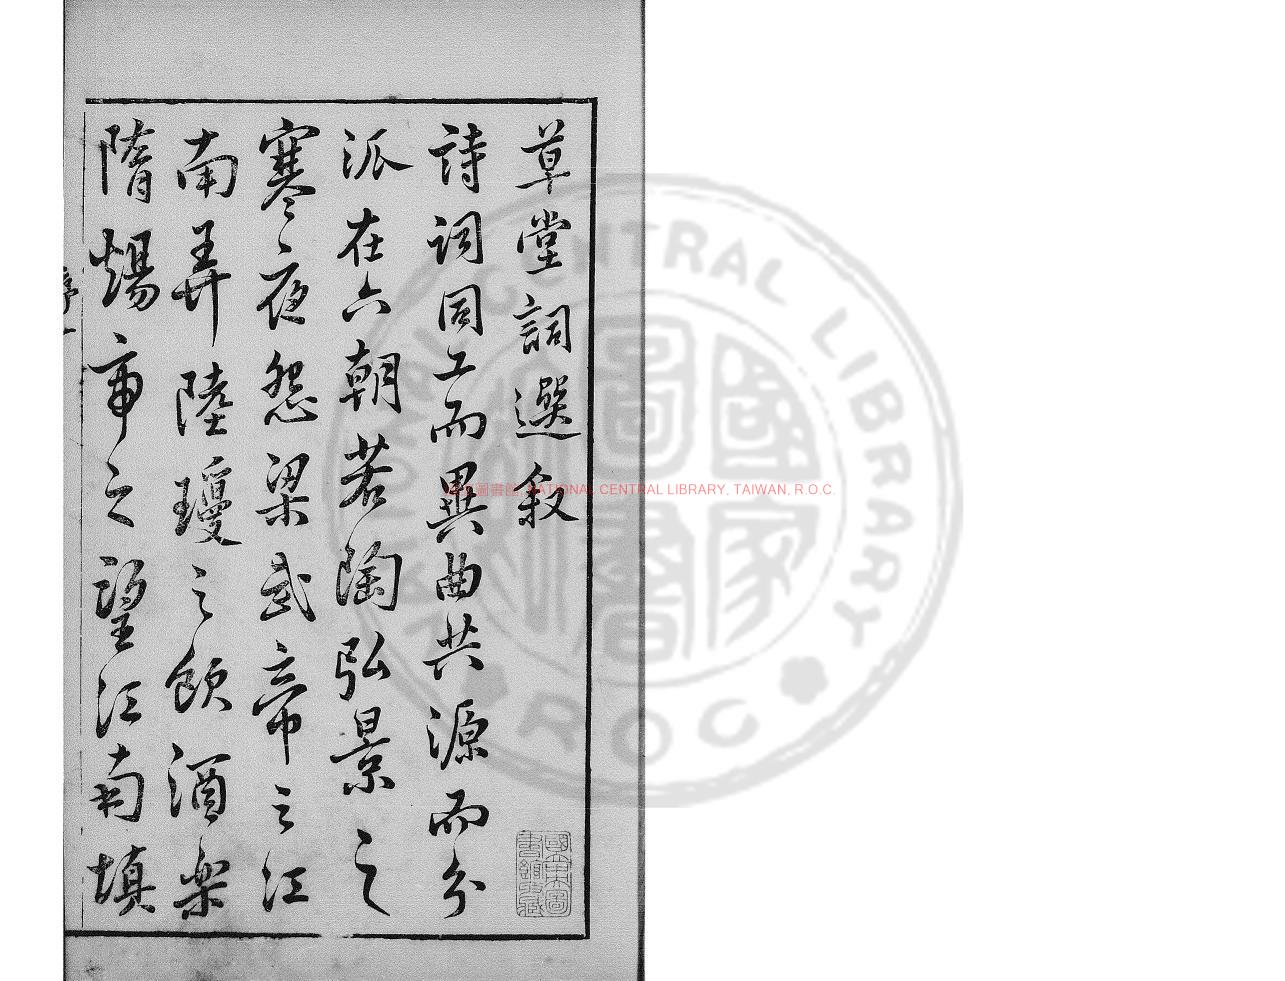 草堂詞選叙
詩詞同工而異曲共源而分
派在六朝若陶弘景之
寒夜怨梁武帝之江
南弄陸瓊之飲酒樂
隋煬帝之望江南填
序
一
國家圖書館藏
NATIONAL CENTRAL LIBRARY
R.O.C
國家圖書
國家圖書館, NATIONAL CENTRAL LIBRARY, TAIWAN, R.O.C.